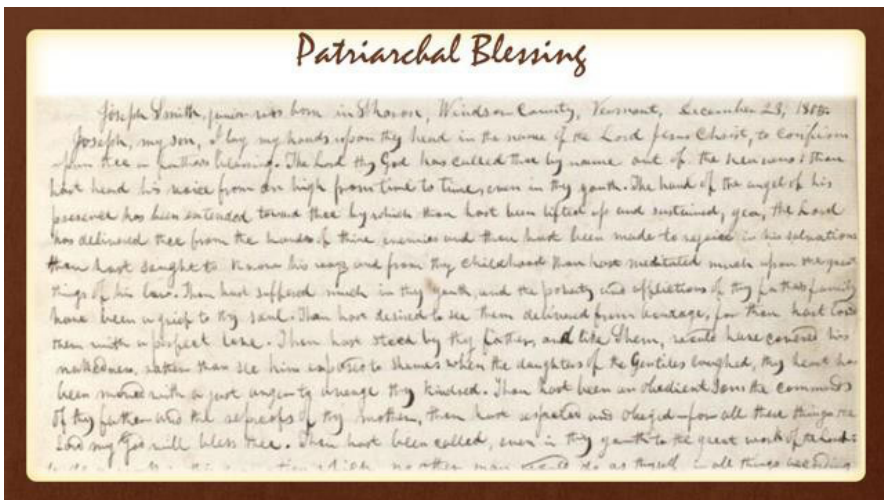 Patriarchal Blessing
Joseph Smith, junior was born in Sharon, Windsor County, Vermont, December 23, 1805.
Joseph, my son, I lay my hands upon thy head in the name of the Lord Jesus Christ, to confirm
upon thee a father's blessing. The Lord thy God has called thee by name out of the heavens: thou
hast heard his voice from on high from time to time, even in thy youth. The hand of the angel of his
presence has been extended toward thee by which thou hast been lifted up and sustained; yea, the Lord
has delivered thee from the hands of thine enemies: and thou hast been made to rejoice in his salvation:
thou hast sought to know his ways, and from thy childhood thou hast meditated much upon the great
things of his law. Thou hast suffered much in thy youth, and the poverty and afflictions of thy father's family
have been a grief to thy soul. Thou hast desired to see them delivered from bondage, for thou hast loved
them with a perfect love. Thou hast stood by thy father, and like Shem, would have covered his
nakedness, rather than see him exposed to shame: when the daughters of the Gentiles laughed, thy heart has
been moved with a just anger to avenge thy kindred. Thou hast been an obedient son: the commands
of thy father and the reproofs of thy mother, thou hast respected and obeyed—for all these things the
Lord my God will bless thee. Thou hast been called, even in thy youth to the great work of the Lord:
no other man would do as thyself, in all things according